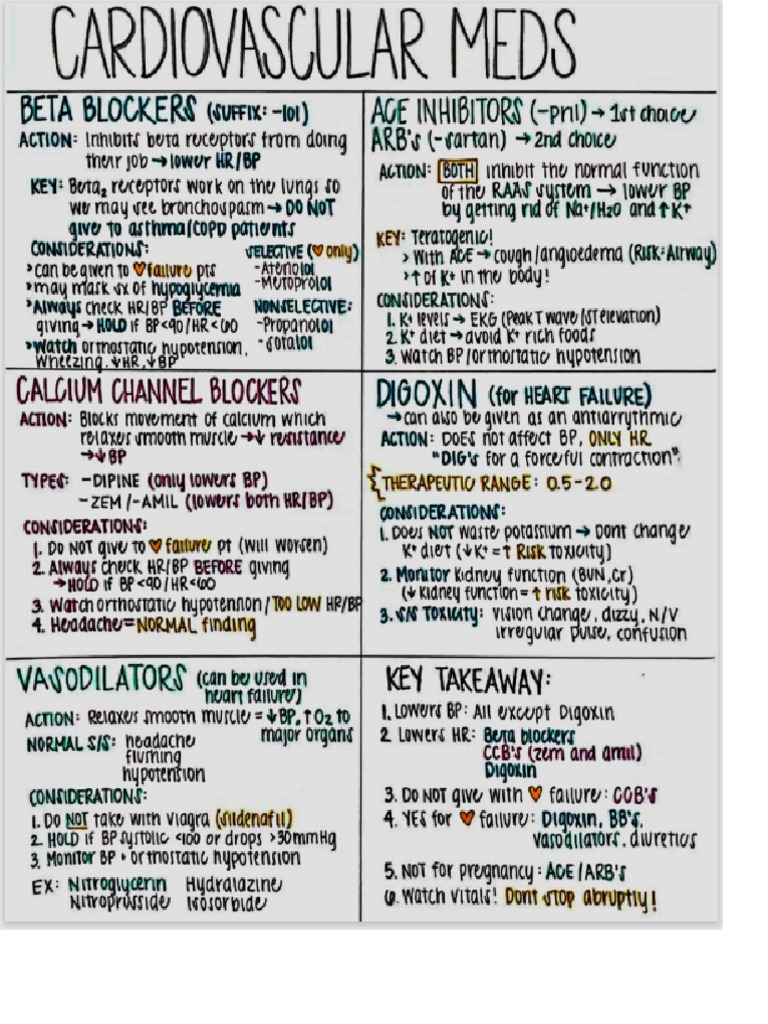 CARDIOVASCULAR MEDS
BETA BLOCKERS (SUFFIX: -lol)
ACTION: Inhibits beta receptors from doing
their job → lower HR/BP
KEY: Beta₂ receptors work on the lungs so
we may see bronchospasm → DO NOT
give to asthma/COPD patients
CONSIDERATIONS:
>can be given to 🧡failure pts
>may mask sx of hypoglycemia
>Always check HR/BP BEFORE
giving → HOLD if BP<90/HR<60
>Watch orthostatic hypotension,
Wheezing, ↓HR, ↓BP
SELECTIVE (🧡only)
-Atenolol
-Metoprolol
NONSELECTIVE:
-Propanolol
-Sotalol
ACE INHIBITORS (-pril) → 1st choice
ARB's (-sartan) → 2nd choice
ACTION: BOTH inhibit the normal function
of the RAAS system → lower BP
by getting rid of Na⁺/H2O and ↑K⁺
KEY: Teratogenic!
> With ACE → cough/angioedema (Risk:Airway)
> ↑ of K⁺ in the body!
CONSIDERATIONS:
1. K⁺ levels → EKG (Peak T wave/ST elevation)
2. K⁺ diet → avoid K⁺ rich foods
3. Watch BP/orthostatic hypotension
CALCIUM CHANNEL BLOCKERS
ACTION: Blocks movement of calcium which
relaxes smooth muscle →↓ resistance
→↓BP
TYPES: -DIPINE (only lowers BP)
-ZEM/-AMIL (lowers both HR/BP)
CONSIDERATIONS:
1. DO NOT give to 🧡 failure pt (will worsen)
2. Always check HR/BP BEFORE giving
→HOLD if BP<90/HR<60
3. Watch orthostatic hypotension/TOO LOW HR/BP
4. Headache = NORMAL finding
DIGOXIN (for HEART FAILURE)
→can also be given as an antiarrythmic
ACTION: DOES not affect BP, ONLY HR
"DIG's for a forceful contraction".
THERAPEUTIC RANGE: 0.5-2.0
CONSIDERATIONS:
1. Does NOT waste potassium → Dont change
K⁺ diet (↓K⁺ = ↑ RISK toxicity)
2. Monitor kidney function (BUN, Cr)
(↓ kidney function = ↑ risk toxicity)
3. S/S TOXICITY: vision change, dizzy, N/V
irregular pulse, confusion
VASODILATORS (can be used in
heart failure)
ACTION: Relaxes smooth muscle = ↓BP, ↑O2 to
major organs
NORMAL S/S: headache
flushing
hypotension
CONSIDERATIONS:
1. Do NOT take with Viagra (sildenafil)
2. HOLD if BP systolic <100 or drops >30mmHg
3. Monitor BP + orthostatic hypotension
EX: Nitroglycerin Hydralazine
Nitroprusside Isosorbide
KEY TAKEAWAY:
1. Lowers BP: All except Digoxin
2 Lowers HR: Beta blockers
CCB's (zem and amil)
Digoxin
3. DO NOT give with 🧡 failure: CCB's
4. YES for 🧡 failure: Digoxin, BB's,
vasodilators, diuretics
5. NOT for pregnancy: ACE/ARB's
6. Watch vitals! Dont stop abruptly!